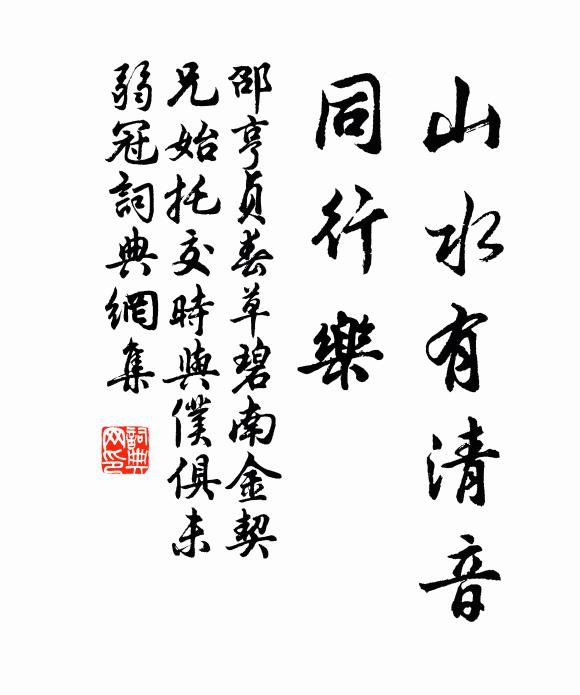 山水有清音
同行樂
邵亨貞春草碧南金契
兄始托交時與僕俱未
弱冠詞典網集
詞典網印